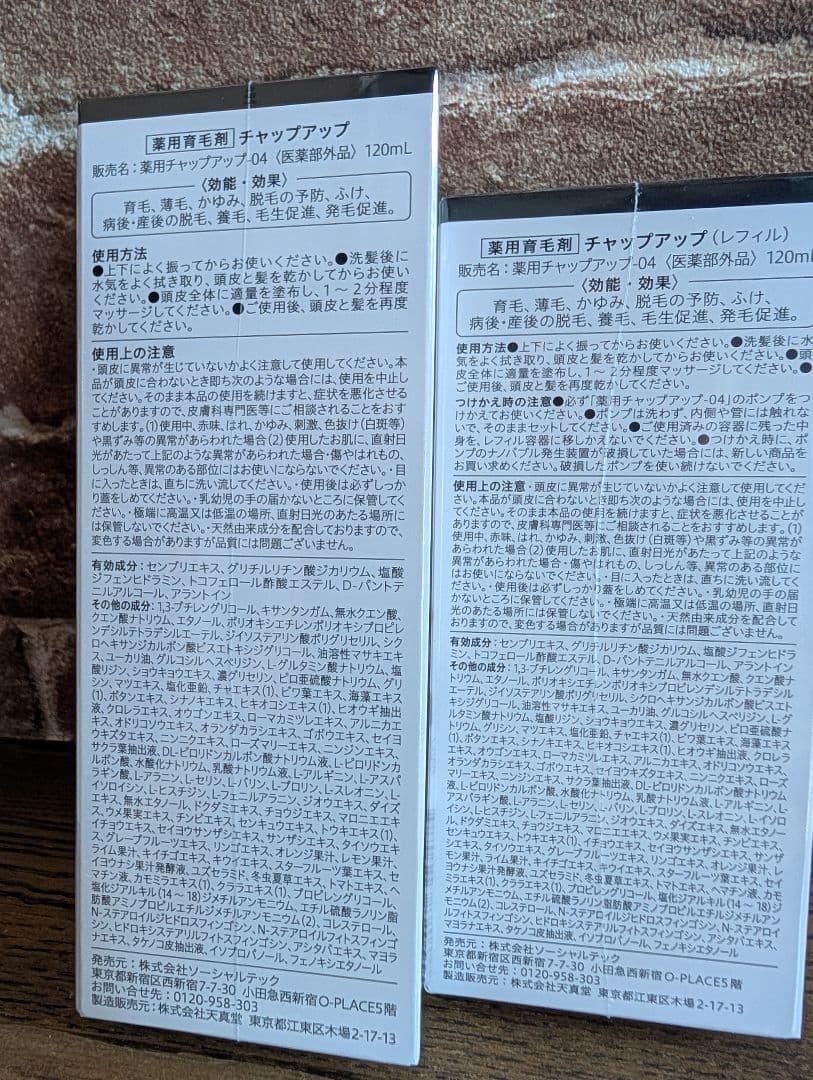 薬用育毛剤 チャップアップ
販売名：薬用チャップアップ-04〈医薬部外品〉120mL
〈効能・効果〉
育毛、薄毛、かゆみ、脱毛の予防、ふけ、
病後・産後の脱毛、養毛、毛生促進、発毛促進。
使用方法
●上下によく振ってからお使いください。●洗髪後に
水気をよく拭き取り、頭皮と髪を乾かしてからお使い
ください。●頭皮全体に適量を塗布し、1～2分程度
マッサージしてください。●ご使用後、頭皮と髪を再度
乾かしてください。
使用上の注意
・頭皮に異常が生じていないかよく注意して使用してください。本
品が頭皮に合わないとき即ち次のような場合には、使用を中止し
てください。そのまま本品の使用を続けますと、症状を悪化させるこ
とがありますので、皮膚科専門医等にご相談されることをおす
すめします。(1)使用中、赤味、はれ、かゆみ、刺激、色抜け(白斑等)
や黒ずみ等の異常があらわれた場合(2)使用したお肌に、直射日
光があたって上記のような異常があらわれた場合・傷やはれもの、
しっしん等、異常のある部位にはお使いにならないでください。・目
に入ったときは、直ちに洗い流してください。・使用後は必ずしっか
り蓋をしめてください。・乳幼児の手の届かないところに保管してく
ださい。・極端に高温又は低温の場所、直射日光のあたる場所に
は保管しないでください。・天然由来成分を配合しておりますので、
変色する場合がありますが品質には問題ございません。
有効成分：センブリエキス、グリチルリチン酸ジカリウム、塩酸
ジフェンヒドラミン、トコフェロール酢酸エステル、D-パントテ
ニルアルコール、アラントイン
その他の成分：1,3-ブチレングリコール、キサンタンガム、無水クエン酸、
クエン酸ナトリウム、エタノール、ポリオキシエチレンポリオキシプロピレ
ンデシルテトラデシルエーテル、ジイソステアリン酸ポリグリセリル、シク
ロヘキサンジカルボン酸ビスエトキシジグリコール、油溶性マサキエキ
ス、ユーカリ油、グルコシルヘスペリジン、L-グルタミン酸ナトリウム、塩
酸リジン、ショウキョウエキス、濃グリセリン、ピロ亜硫酸ナトリウム、グリ
シン、マツエキス、塩化亜鉛、チャエキス(1)、ビワ葉エキス、海藻エキス
(1)、ボタンエキス、シナノキエキス、ヒキオコシエキス(1)、ヒオウギ抽出
液、クロレラエキス、オウゴンエキス、ローマカミツレエキス、アルニカエ
キス、オドリコソウエキス、オランダカラシエキス、ゴボウエキス、セイヨ
ウキズタエキス、ニンニクエキス、ローズマリーエキス、ニンジンエキス、
サクラ葉抽出液、DL-ピロリドンカルボン酸ナトリウム液、L-ピロリドンカ
ルボン酸、水酸化ナトリウム、乳酸ナトリウム液、L-アルギニン、L-アスパ
ラギン酸、L-アラニン、L-セリン、L-バリン、L-プロリン、L-スレオニン、L-
イソロイシン、L-ヒスチジン、L-フェニルアラニン、ジオウエキス、ダイズ
エキス、無水エタノール、ドクダミエキス、チョウジエキス、マロニエエキ
ス、ウメ果実エキス、チンピエキス、センキュウエキス、トウキエキス(1)、
イチョウエキス、セイヨウサンザシエキス、サンザシエキス、タイソウエキ
ス、グレープフルーツエキス、リンゴエキス、オレンジ果汁、レモン果汁、
ライム果汁、キイチゴエキス、キウイエキス、スターフルーツ葉エキス、セ
イヨウナシ果汁発酵液、ユズセラミド、冬虫夏草エキス、トマトエキス、ヘ
マチン液、カモミラエキス(1)、クララエキス(1)、プロピレングリコール、
塩化ジアルキル(14～18)ジメチルアンモニウム、エチル硫酸ラノリン脂
肪酸アミノプロピルエチルジメチルアンモニウム(2)、コレステロール、
N-ステアロイルジヒドロスフィンゴシン、N-ステアロイルフィトスフィンゴ
シン、ヒドロキシステアリルフィトスフィンゴシン、アシタバエキス、マヨラ
ナエキス、タケノコ皮抽出液、イソプロパノール、フェノキシエタノール
発売元：株式会社ソーシャルテック
東京都新宿区西新宿7-7-30 小田急西新宿O-PLACE5階
お問い合せ先：0120-958-303
製造販売元：株式会社天真堂 東京都江東区木場2-17-13
薬用育毛剤 チャップアップ（レフィル）
販売名：薬用チャップアップ-04〈医薬部外品〉120mL
〈効能・効果〉
育毛、薄毛、かゆみ、脱毛の予防、ふけ、
病後・産後の脱毛、養毛、毛生促進、発毛促進。
使用方法●上下によく振ってからお使いください。●洗髪後に水
気をよく拭き取り、頭皮と髪を乾かしてからお使いください。●頭
皮全体に適量を塗布し、1～2分程度マッサージしてください。●
ご使用後、頭皮と髪を再度乾かしてください。
つけかえ時の注意●必ず「薬用チャップアップ-04」のポンプをつ
けかえてお使いください。●ポンプは洗わず、内側や管には触れな
いで、そのままセットしてください。●ご使用済みの容器に残った中
身を、レフィル容器に移しかえないでください。●つけかえ時に、ポ
ンプのナノバブル発生装置が破損していた場合には、新しい商品を
お買い求めください。破損したポンプを使い続けないでください。
使用上の注意・頭皮に異常が生じていないかよく注意して使用してくださ
い。本品が頭皮に合わないとき即ち次のような場合には、使用を中止し
てください。そのまま本品の使用を続けますと、症状を悪化させることが
ありますので、皮膚科専門医等にご相談されることをおすすめします。(1)
使用中、赤味、はれ、かゆみ、刺激、色抜け(白斑等)や黒ずみ等の異常が
あらわれた場合(2)使用したお肌に、直射日光があたって上記のような
異常があらわれた場合・傷やはれもの、しっしん等、異常のある部位に
はお使いにならないでください。・目に入ったときは、直ちに洗い流してく
ださい。・使用後は必ずしっかり蓋をしめてください。・乳幼児の手の届
かないところに保管してください。・極端に高温又は低温の場所、直射日
光のあたる場所には保管しないでください。・天然由来成分を配合して
おりますので、変色する場合がありますが品質には問題ございません。
有効成分：センブリエキス、グリチルリチン酸ジカリウム、塩酸ジフェンヒドラ
ミン、トコフェロール酢酸エステル、D-パントテニルアルコール、アラントイン
その他の成分：1,3-ブチレングリコール、キサンタンガム、無水クエン酸、クエン酸ナ
トリウム、エタノール、ポリオキシエチレンポリオキシプロピレンデシルテトラデシル
エーテル、ジイソステアリン酸ポリグリセリル、シクロヘキサンジカルボン酸ビスエト
キシジグリコール、油溶性マサキエキス、ユーカリ油、グルコシルヘスペリジン、L-グ
ルタミン酸ナトリウム、塩酸リジン、ショウキョウエキス、濃グリセリン、ピロ亜硫酸ナ
トリウム、グリシン、マツエキス、塩化亜鉛、チャエキス(1)、ビワ葉エキス、海藻エキス
(1)、ボタンエキス、シナノキエキス、ヒキオコシエキス(1)、ヒオウギ抽出液、クロレラ
エキス、オウゴンエキス、ローマカミツレエキス、アルニカエキス、オドリコソウエキス、
オランダカラシエキス、ゴボウエキス、セイヨウキズタエキス、ニンニクエキス、ローズ
マリーエキス、ニンジンエキス、サクラ葉抽出液、DL-ピロリドンカルボン酸ナトリウム
液、L-ピロリドンカルボン酸、水酸化ナトリウム、乳酸ナトリウム液、L-アルギニン、L-
アスパラギン酸、L-アラニン、L-セリン、L-バリン、L-プロリン、L-スレオニン、L-イソロ
イシン、L-ヒスチジン、L-フェニルアラニン、ジオウエキス、ダイズエキス、無水エタノー
ル、ドクダミエキス、チョウジエキス、マロニエエキス、ウメ果実エキス、チンピエキス、
センキュウエキス、トウキエキス(1)、イチョウエキス、セイヨウサンザシエキス、サンザ
シエキス、タイソウエキス、グレープフルーツエキス、リンゴエキス、オレンジ果汁、レ
モン果汁、ライム果汁、キイチゴエキス、キウイエキス、スターフルーツ葉エキス、セイ
ヨウナシ果汁発酵液、ユズセラミド、冬虫夏草エキス、トマトエキス、ヘマチン液、カモ
ミラエキス(1)、クララエキス(1)、プロピレングリコール、塩化ジアルキル(14～18)ジ
メチルアンモニウム、エチル硫酸ラノリン脂肪酸アミノプロピルエチルジメチルアン
モニウム(2)、コレステロール、N-ステアロイルジヒドロスフィンゴシン、N-ステアロイ
ルフィトスフィンゴシン、ヒドロキシステアリルフィトスフィンゴシン、アシタバエキス、
マヨラナエキス、タケノコ皮抽出液、イソプロパノール、フェノキシエタノール
発売元：株式会社ソーシャルテック
東京都新宿区西新宿7-7-30 小田急西新宿O-PLACE5階
お問い合せ先：0120-958-303
製造販売元：株式会社天真堂 東京都江東区木場2-17-13